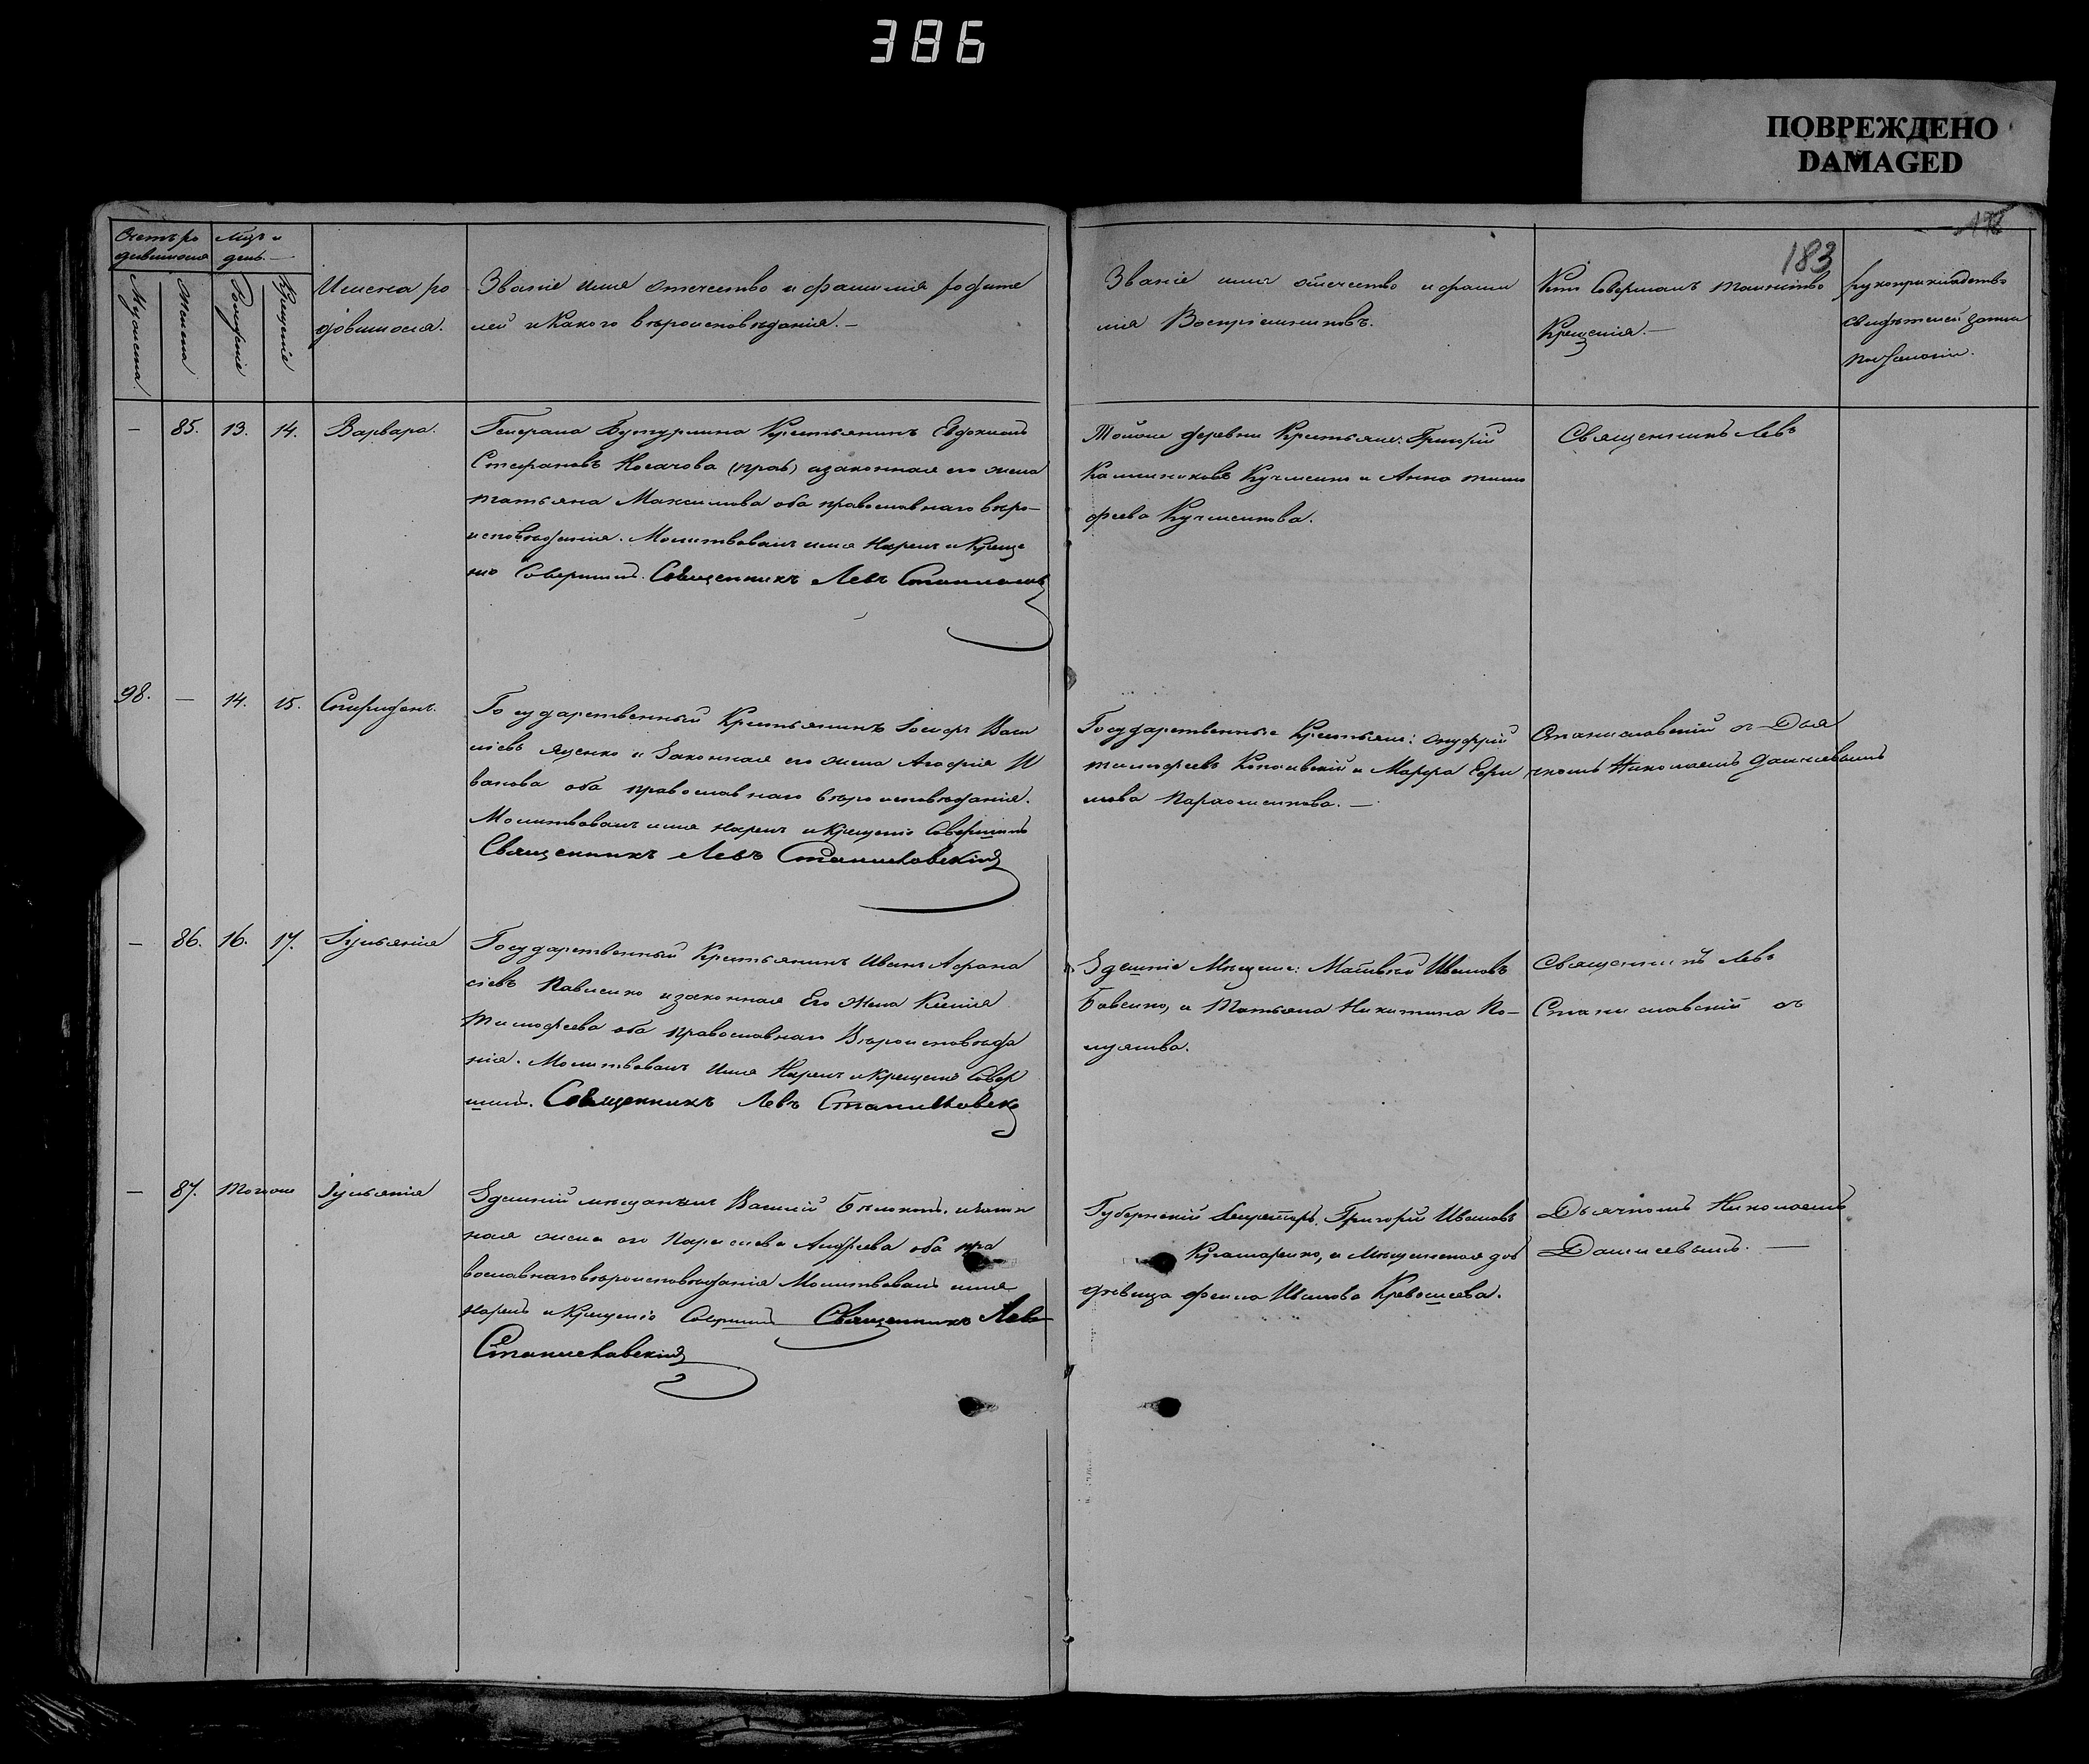 386
ПОВРЕЖДЕНО
DAMAGED
183
Счетъ ро
дившихся
Мѣс. и
день.
Мужеска
Женска
Рожденіе
Крещеніе
Имена ро
дившихся.
Званіе имя отчество и фамилія родите
лей и какого вѣроисповѣданія. —
Званіе имя отечество и фами
лія Воспріемниковъ.
Кто Совершалъ таинство
Крещенія. —
Рукоприкладство
свидѣтелей записи
по желанію.
— 85. 13. 14. Варвара.
Генерала Бутурлина Крестьянинъ Евдокимъ
Стефановъ Носачова (прав) и законная его жена
татьяна Максимова оба православнаго вѣро-
исповѣданія. Молитвовалъ имя Нарекъ и Креще
ніе Совершилъ. Священникъ Левъ
Тойже деревни Крестьяне: Григорій
Калиниковъ Кучменко и Анна тимо
феева Кучменкова.
Священникъ Левъ
98. — 14. 15. Спиридонъ.
Государственный Крестьянинъ Іосифъ Васи
ліевъ Яценко и Законная его жена Агафія И
ванова оба православнаго вѣроисповѣданія.
Молитвовалъ имя нарекъ и Крещеніе Совершилъ
Священникъ Левъ Станиславскій
Государственные Крестьяне: Онуфрій
тимофеевъ и Марфа Ефи
мова Пархоменкова. —
Станиславскій съ Дья
чкомъ Николаемъ Данилевымъ
— 86. 16. 17. Іуліанія
Государственный Крестьянинъ Иванъ Афана
сіевъ Павленко и законная Его Жена Ксенія
Тимофеева оба православнаго Вѣроисповѣда
нія. Молитвовалъ Имя Нарекъ и Крещеніе Совер
шилъ. Священникъ Левъ Станиславскій
Здешніе Мещане: Матвей Ивановъ
Бовенко, и Татьяна Никитина По-
луянова.
Священникъ Левъ
Станиславскій съ
— 87. Тогоже Іуліанія
Здешній мещанинъ Василій и закон
ная жена его Парасковія Андреева оба пра
вославнаго вѣроисповѣданія Молитвовалъ имя
Нарекъ и Крещеніе Совершилъ Священникъ Левъ
Станиславскій
Губернскій Секретарь. Григорій Ивановъ
и Мещанская
дѣвица Фекла Иванова
Дьячкомъ Николаемъ
Данилевымъ. —